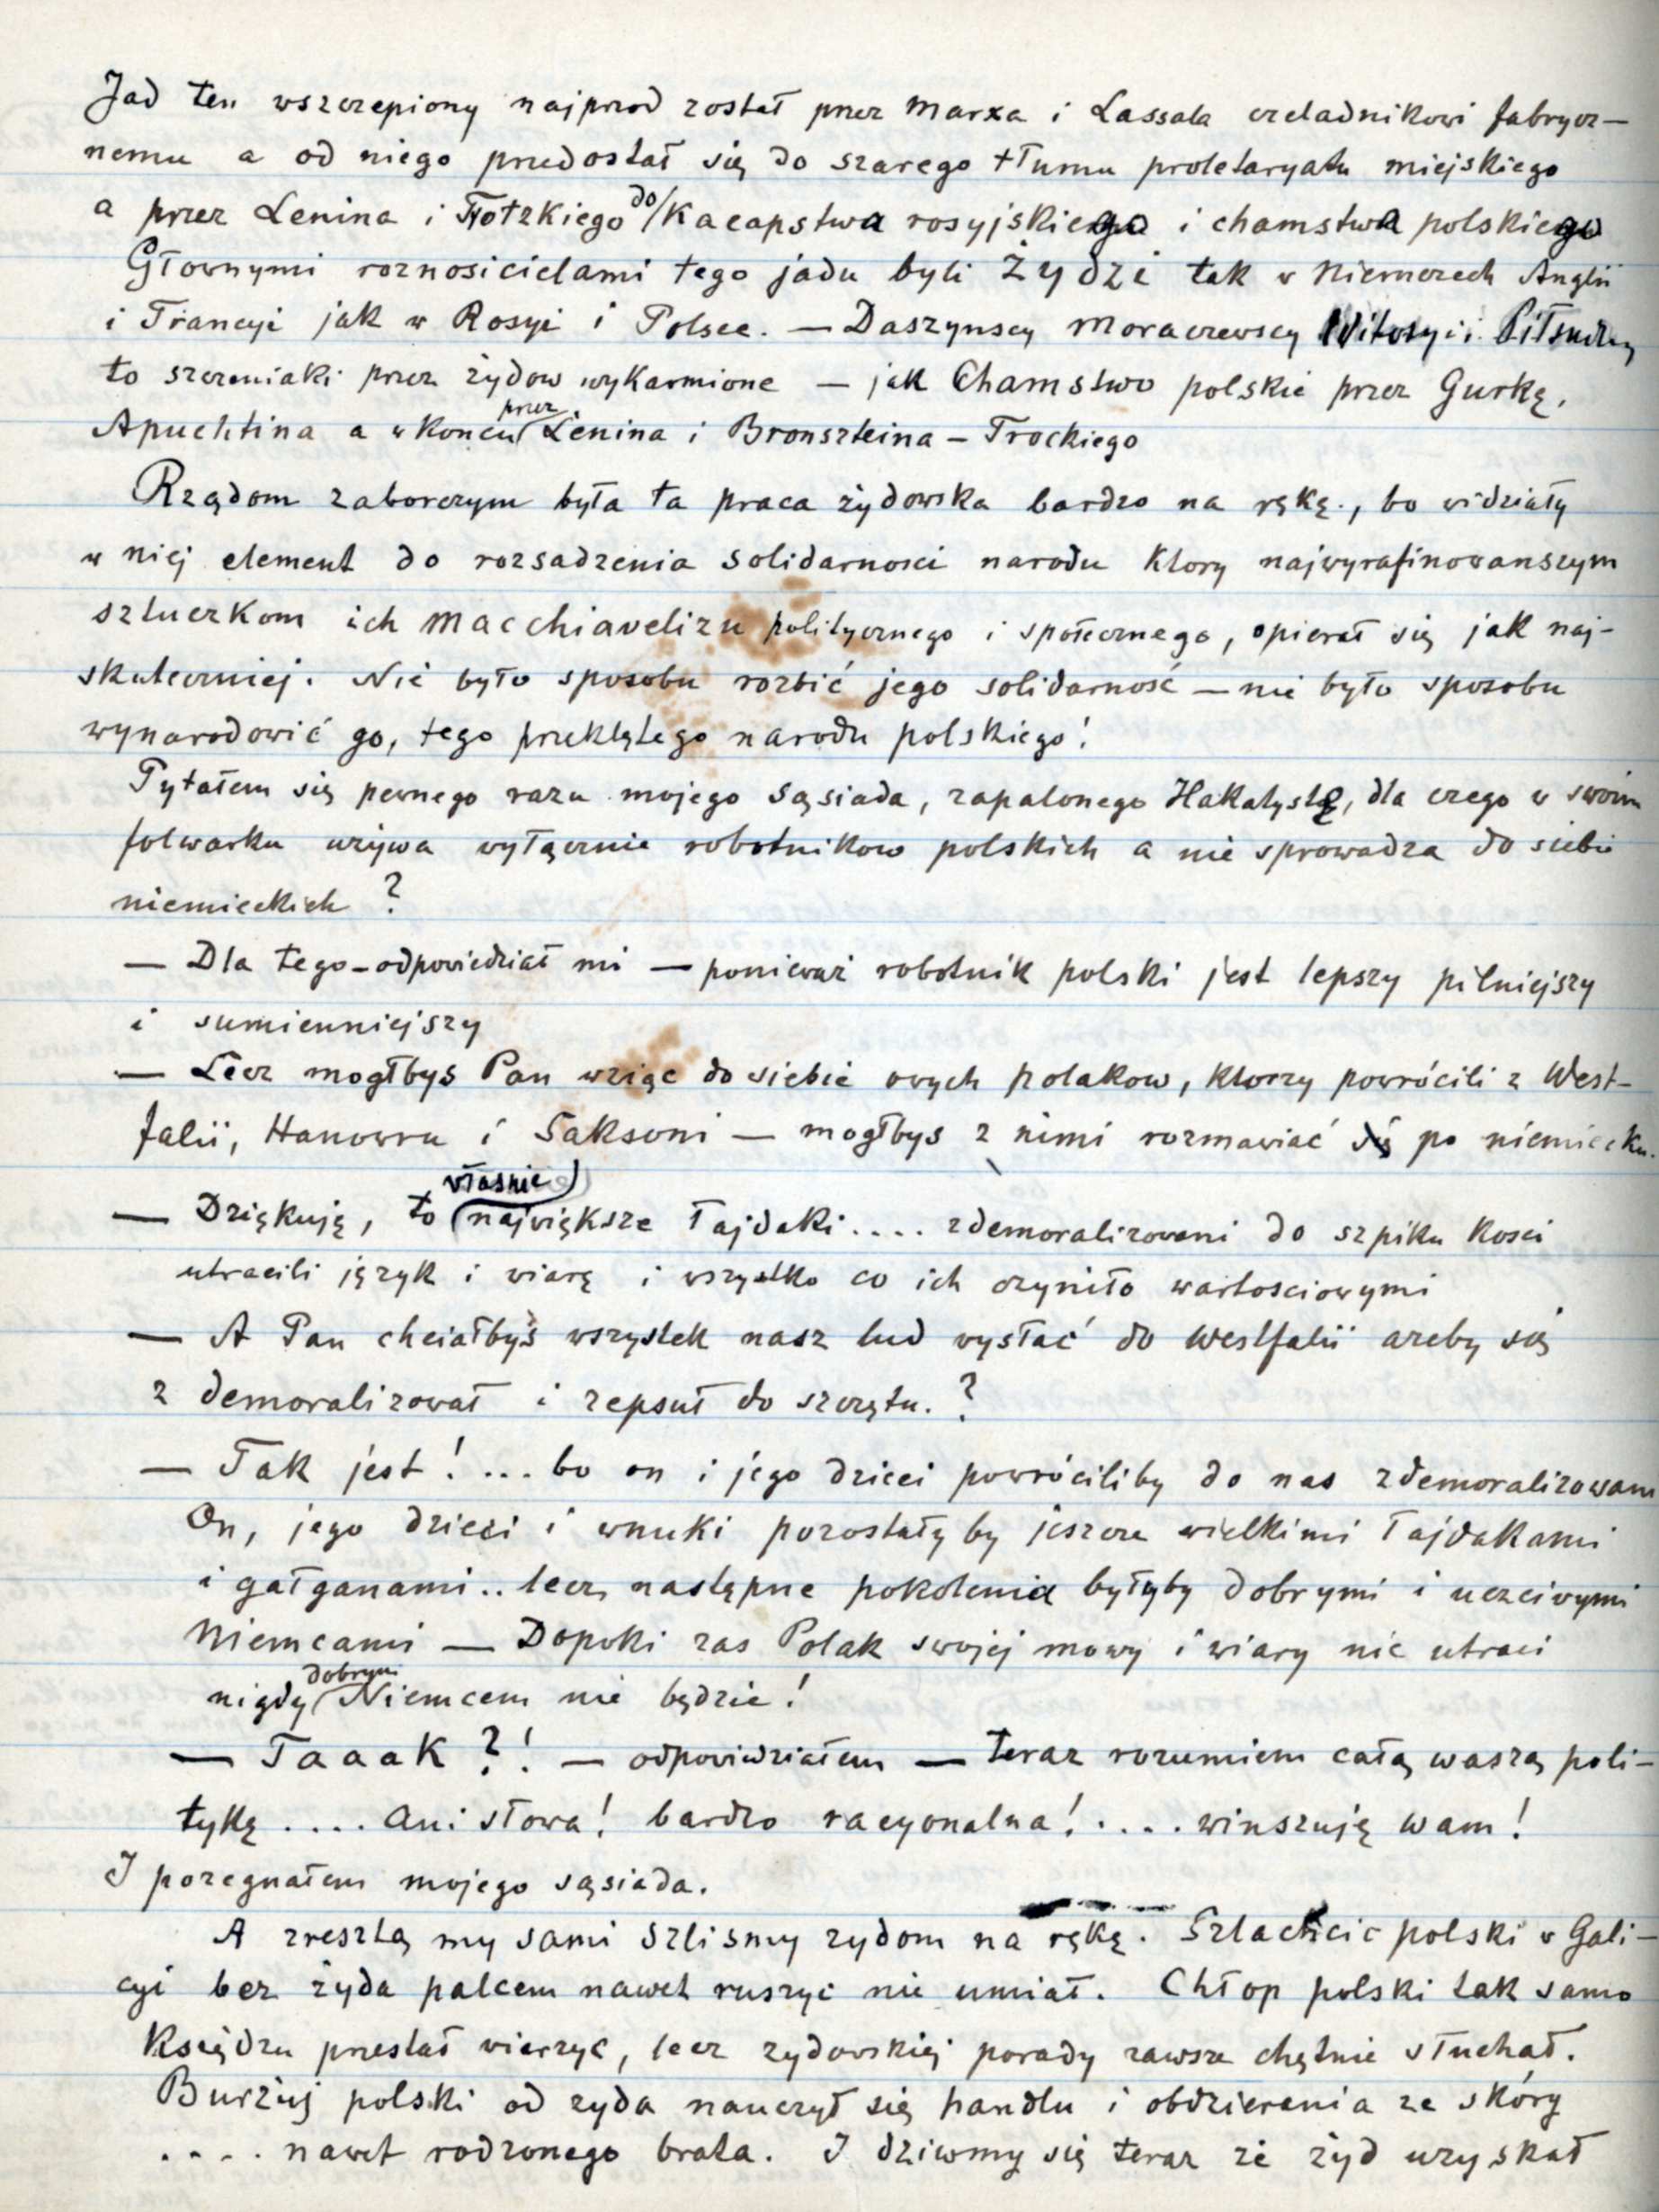 Jad ten wszczepiony najprzod został przez Marxa i Lassala czeladnikowi fabrycz-
nemu a od niego przedostał się do szarego tłumu proletaryatu miejskiego
a przez Lenina i Trotzkiego do Kacapstwa rosyjskiego i chamstwa polskiego
Głownymi roznosicielami tego jadu byli Żydzi tak w Niemczech Anglii
i Francyi jak w Rosyi i Polsce. — Daszynscy Moraczewscy Witosy i Piłsudzcy
to szczeniaki przez żydow wykarmione — jak Chamstwo polskie przez Gurkę,
Apuchtina a w koncu przez Lenina i Bronszteina – Trockiego
Rządom zaborczym była ta praca żydowska bardzo na rękę., bo widziały
w niej element do rozsadzenia solidarnosci narodu ktory najwyrafinowanszym
sztuczkom ich Macchiavelizu politycznego i społecznego, opierał się jak naj-
skuteczniej. Nie było sposobu rozbić jego solidarność — nie było sposobu
wynarodowić go, tego przeklętego narodu polskiego!
Pytałem się pewnego razu mojego sąsiada, zapalonego Hakatystę, dla czego w swoim
folwarku używa wyłącznie robotnikow polskich a nie sprowadza do siebie
niemieckich ?
— Dla tego – odpowiedział mi — ponieważ robotnik polski jest lepszy pilniejszy
i sumienniejszy
— Lecz mogłbys Pan wziąc do siebie owych polakow, ktorzy powrócili z West-
falii, Hanowru i Saksoni — mogłbys z nimi rozmawiać się po niemiecku.
— Dziękuję, to właśnie największe łajdaki .... zdemoralizowani do szpiku kosci
utracili język i wiarę i wszystko co ich czyniło wartosciowymi
— A Pan chciałbyś wszystek nasz lud wysłać do Westfalii azeby się
z demoralizował i zepsuł do szczętu. ?
— Tak jest ! ... bo on i jego dzieci powróciliby do nas zdemoralizowani
On, jego dzieci i wnuki pozostałyby jeszcze wielkimi łajdakami
i gałganami .. lecz następne pokolenia byłyby dobrymi i uczciwymi
Niemcami — Dopoki zas Polak swojej mowy i wiary nie utraci
nigdy dobrym Niemcem nie będzie !
— Taaak ?! — odpowiedziałem — teraz rozumiem całą waszą poli-
tykę .... Ani słowa! bardzo racyonalna! .... winszuję wam !
I pozegnałem mojego sąsiada.
A zresztą my sami szlismy zydom na rękę. Szlachcic polski w Gali-
cyi bez żyda palcem nawet ruszyc nie umiał. Chłop polski tak samo
Księdzu przestał wierzyc, lecz zydowskiej porady zawsze chętnie słuchał.
Burżuj polski od zyda nauczył się handlu i obdzierania ze skóry
.... nawet rodzonego brata. I dziwmy się teraz że żyd uzyskał